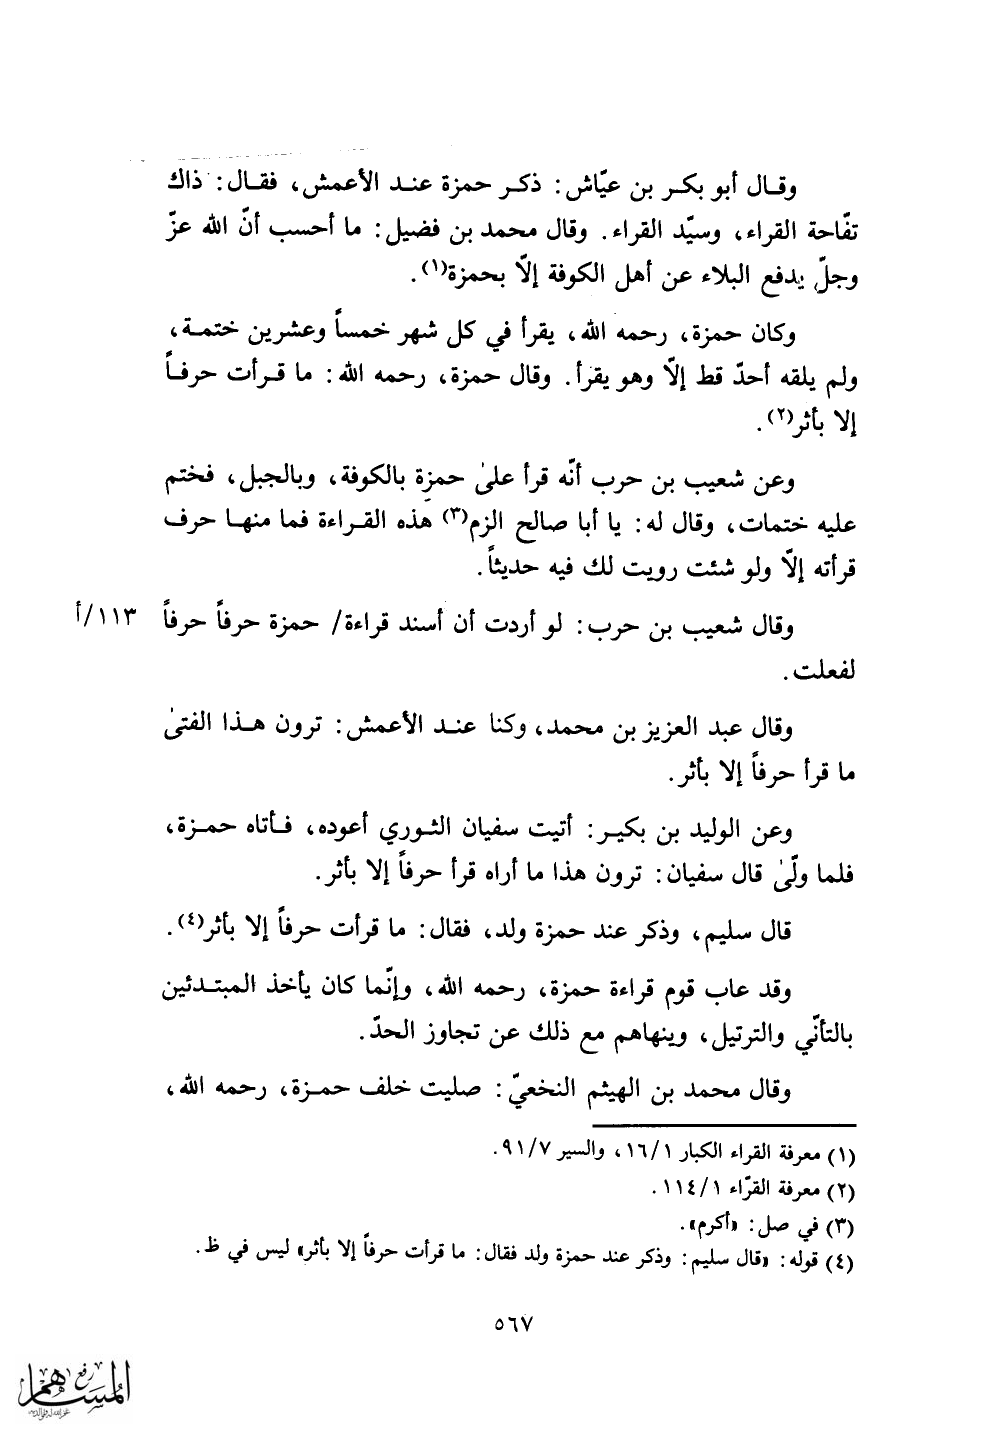 وقال أبو بكر بن عيّاش: ذكر حمزة عند الأعمش، فقال: ذاك
تفّاحة القراء، وسيّد القراء. وقال محمد بن فضيل: ما أحسب أنّ الله عزّ
وجلّ يدفع البلاء عن أهل الكوفة إلاّ بحمزة(١).
وكان حمزة، رحمه الله، يقرأ في كل شهر خمساً وعشرين ختمة،
ولم يلقه أحدّ قط إلاّ وهو يقرأ. وقال حمزة، رحمه الله: ما قرأت حرفاً
إلا بأثر(٢).
وعن شعيب بن حرب أنّه قرأ علىٰ حمزة بالكوفة، وبالجبل، فختم
عليه ختمات، وقال له: يا أبا صالح الزم(٣) هذه القراءة فما منها حرف
قرأته إلاّ ولو شئت رويت لك فيه حديثاً.
وقال شعيب بن حرب: لو أردت أن أسند قراءة/ حمزة حرفاً حرفاً ١١٣/أ
لفعلت.
وقال عبد العزيز بن محمد، وكنا عند الأعمش: ترون هذا الفتىٰ
ما قرأ حرفاً إلا بأثر.
وعن الوليد بن بكير: أتيت سفيان الثوري أعوده، فأتاه حمزة،
فلما ولّىٰ قال سفيان: ترون هذا ما أراه قرأ حرفاً إلا بأثر.
قال سليم، وذكر عند حمزة ولد، فقال: ما قرأت حرفاً إلا بأثر(٤).
وقد عاب قوم قراءة حمزة، رحمه الله، وإنّما كان يأخذ المبتدئين
بالتأنّي والترتيل، وينهاهم مع ذلك عن تجاوز الحدّ.
وقال محمد بن الهيثم النخعيّ: صليت خلف حمزة، رحمه الله،
(١) معرفة القراء الكبار ١٦/١، والسير ٩١/٧.
(٢) معرفة القرّاء ١١٤/١.
(٣) في صل: «أكرم».
(٤) قوله: «قال سليم: وذكر عند حمزة ولد فقال: ما قرأت حرفاً إلا بأثر» ليس في ظ.
٥٦٧